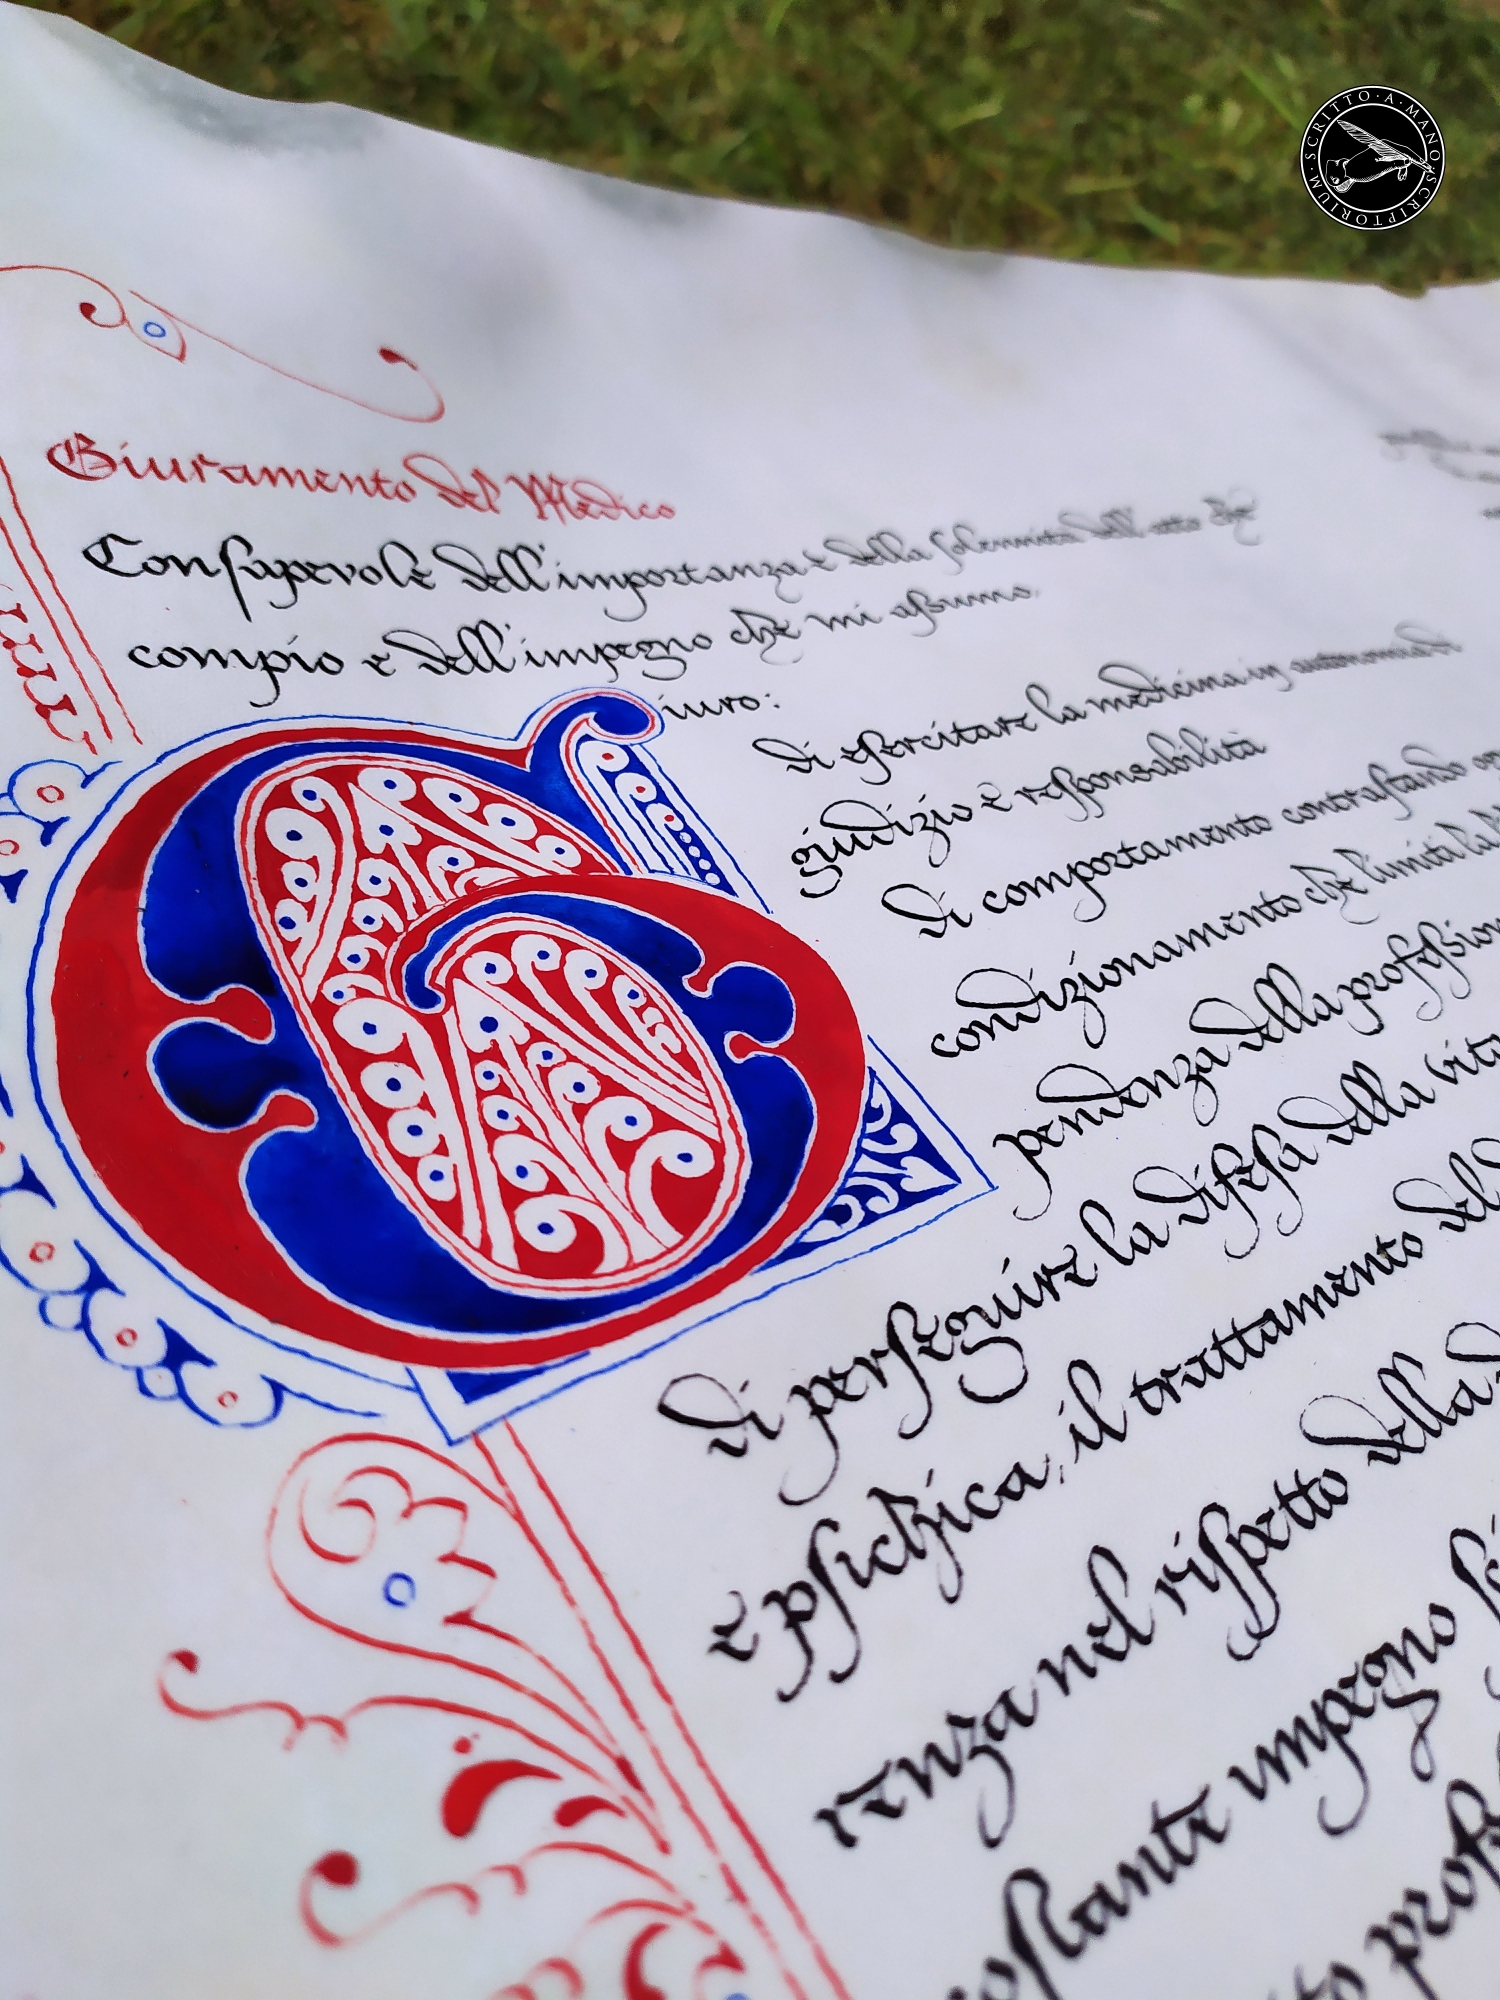 SCRITTO·A·MANO·SCRIPTORIUM·
Giuramento del Medico
Consapevole dell'importanza e della solennità dell'atto che
compio e dell'impegno che mi assumo,
Giuro:
di esercitare la medicina in autonomia di
giudizio e responsabilità
di comportamento contrastando
condizionamento che limiti
pendenza della
di perseguire la difesa della vita
e psichica, il trattamento del
renza nel rispetto della
costante impegno